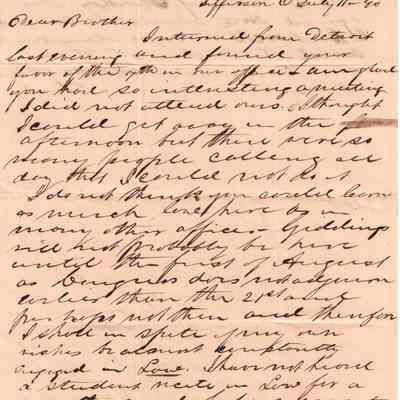 Jefferson O July 11 - 40
Dear Brother
I returned from Detroit
last evening and found your
favor of the 9th in our office & am glad
you had so interesting a meeting
I did not attend ours. I thought
I could get away in the
afternoon but there were so
many people calling all
day that I could not do it
I do not think you could learn
as much Law here as in
many other offices - Giddings
will not probably be here
until the first of August
as Congress does not adjourn
earlier than the 21st and
perhaps not then and therefore
I shall in spite of my own
wishes be almost constantly
engaged in Law. I have not heard
a student recite in Law for a